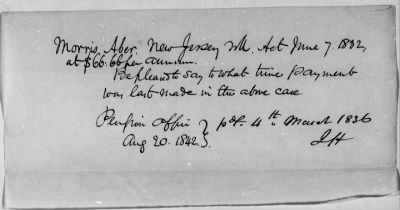 Morris, Aber, New Jersey mil. Act June 7. 1832,
at $66.66 per annum.
Be pleased to say to what time payment
was last made in the above case.
Pension Office } pd. 4th March 1836
Aug 20. 1842 } JH